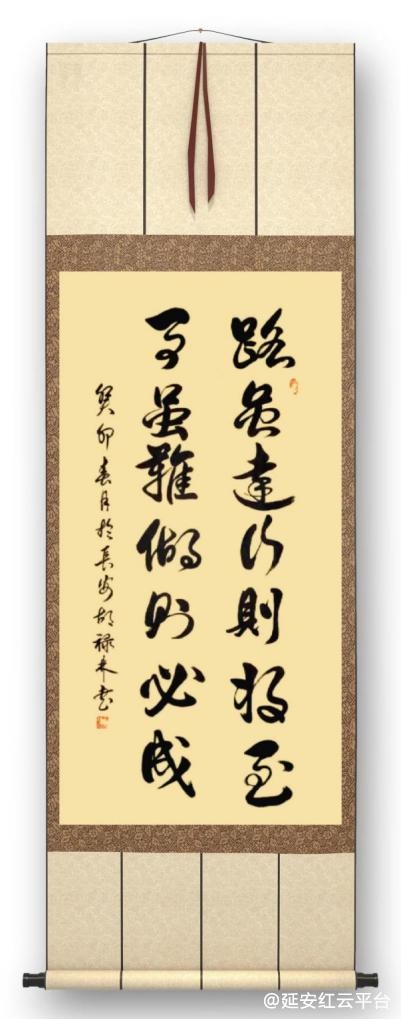 路虽遠行則将至
事虽難做则必成
癸卯春月於長安胡禄来书
@延安红云平台